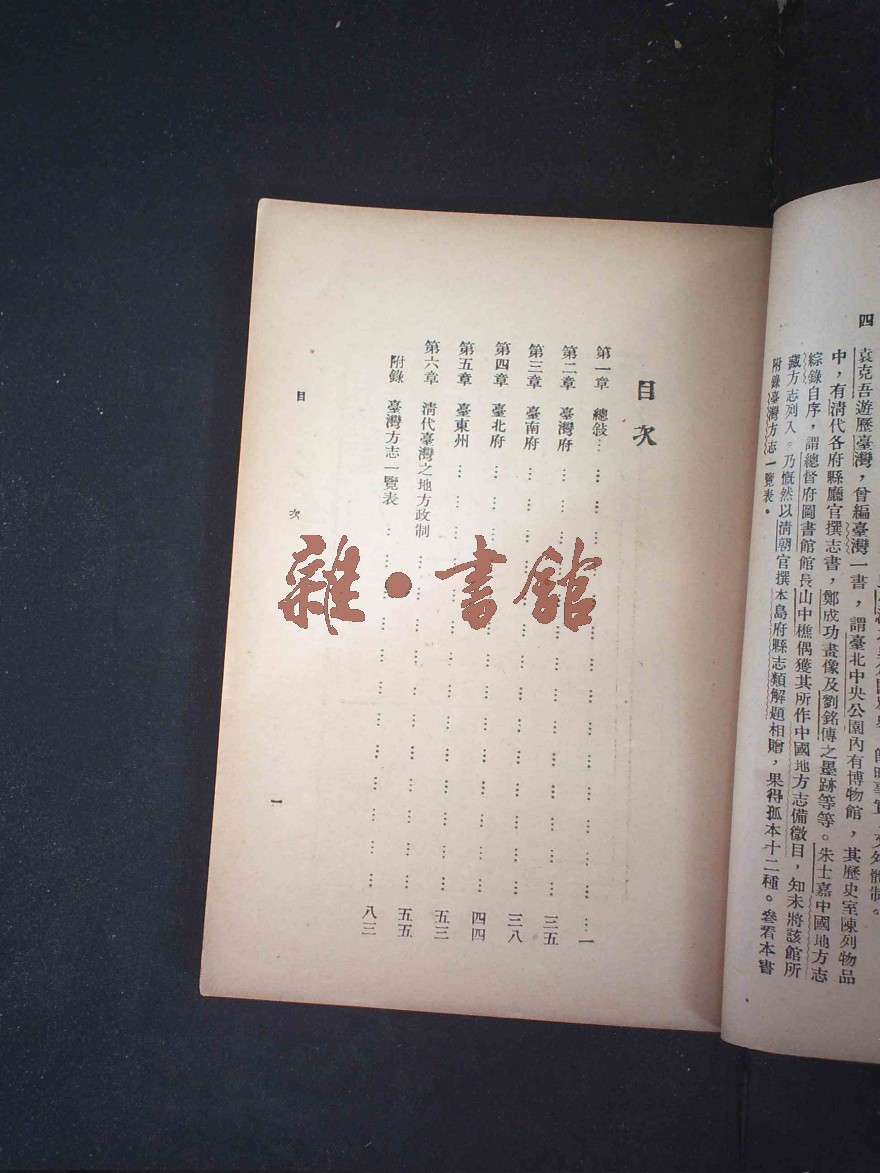 四
制。
袁克吾遊歷臺灣，曾編臺灣一書，謂臺北中央公園內有博物館，其歷史室陳列物品
中，有清代各府縣廳官撰志書，鄭成功畫像及劉銘傳之墨跡等等。朱士嘉中國地方志
綜錄自序，謂總督府圖書館館長山中樵偶獲其所作中國地方志備徵目，知未將該館所
藏方志列入。乃慨然以清朝官撰本島府縣志類解題相贈，果得孤本十二種。參看本書
附錄臺灣方志一覽表。
目次
第一章 總敍⋯⋯一
第二章 臺灣府⋯⋯三五
第三章 臺南府⋯⋯三八
第四章 臺北府⋯⋯四四
第五章 臺東州⋯⋯五三
第六章 清代臺灣之地方政制⋯⋯五五
附錄 臺灣方志一覽表⋯⋯八三
目 次
一
雜·書館